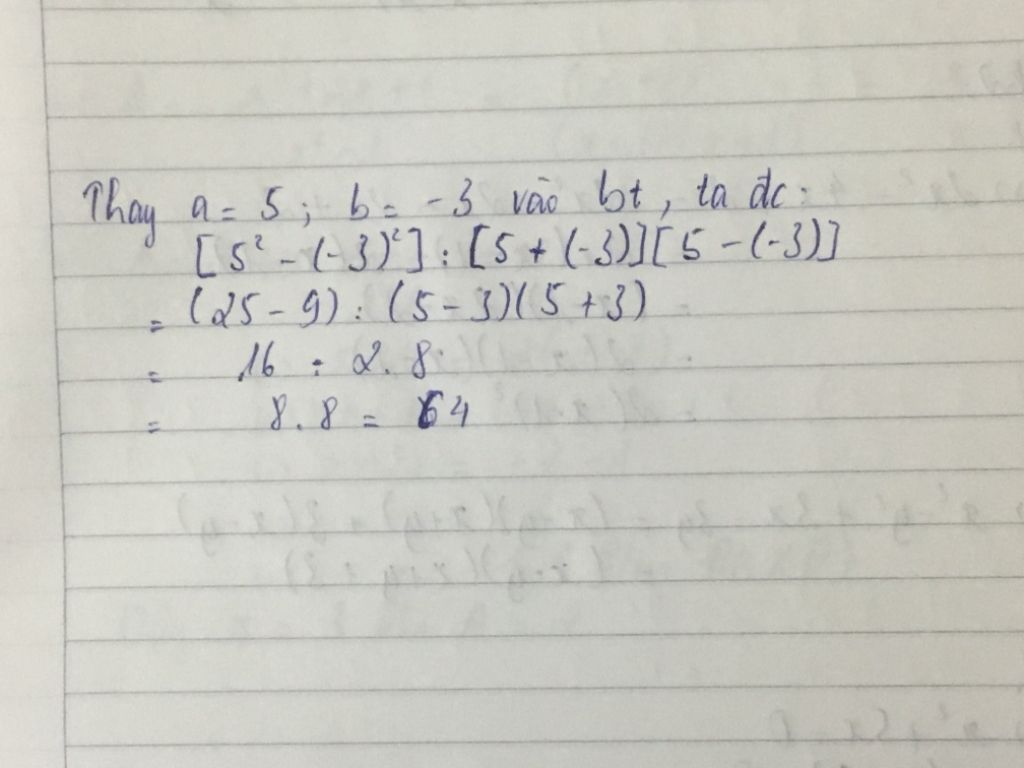 Thay a = 5 ; b = -3 vào bt, ta đc:
[5² - (-3)²] : [5 + (-3)][5 - (-3)]
= (25 - 9) : (5 - 3)(5 + 3)
= 16 : 2. 8
= 8. 8 = 64